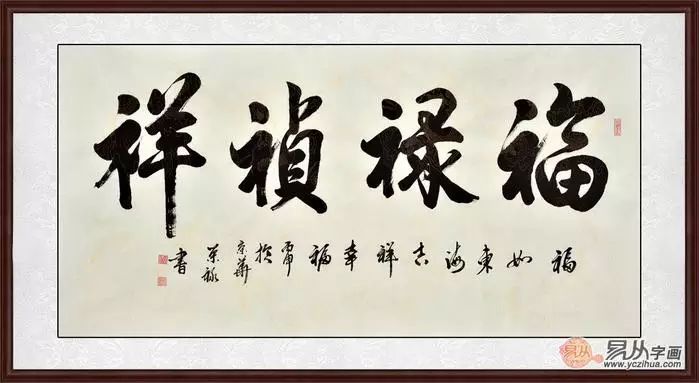 福禄祯祥
福如东海吉祥幸福
丙申
於
京華
荣禄
书
易从字画
www.yczihua.com